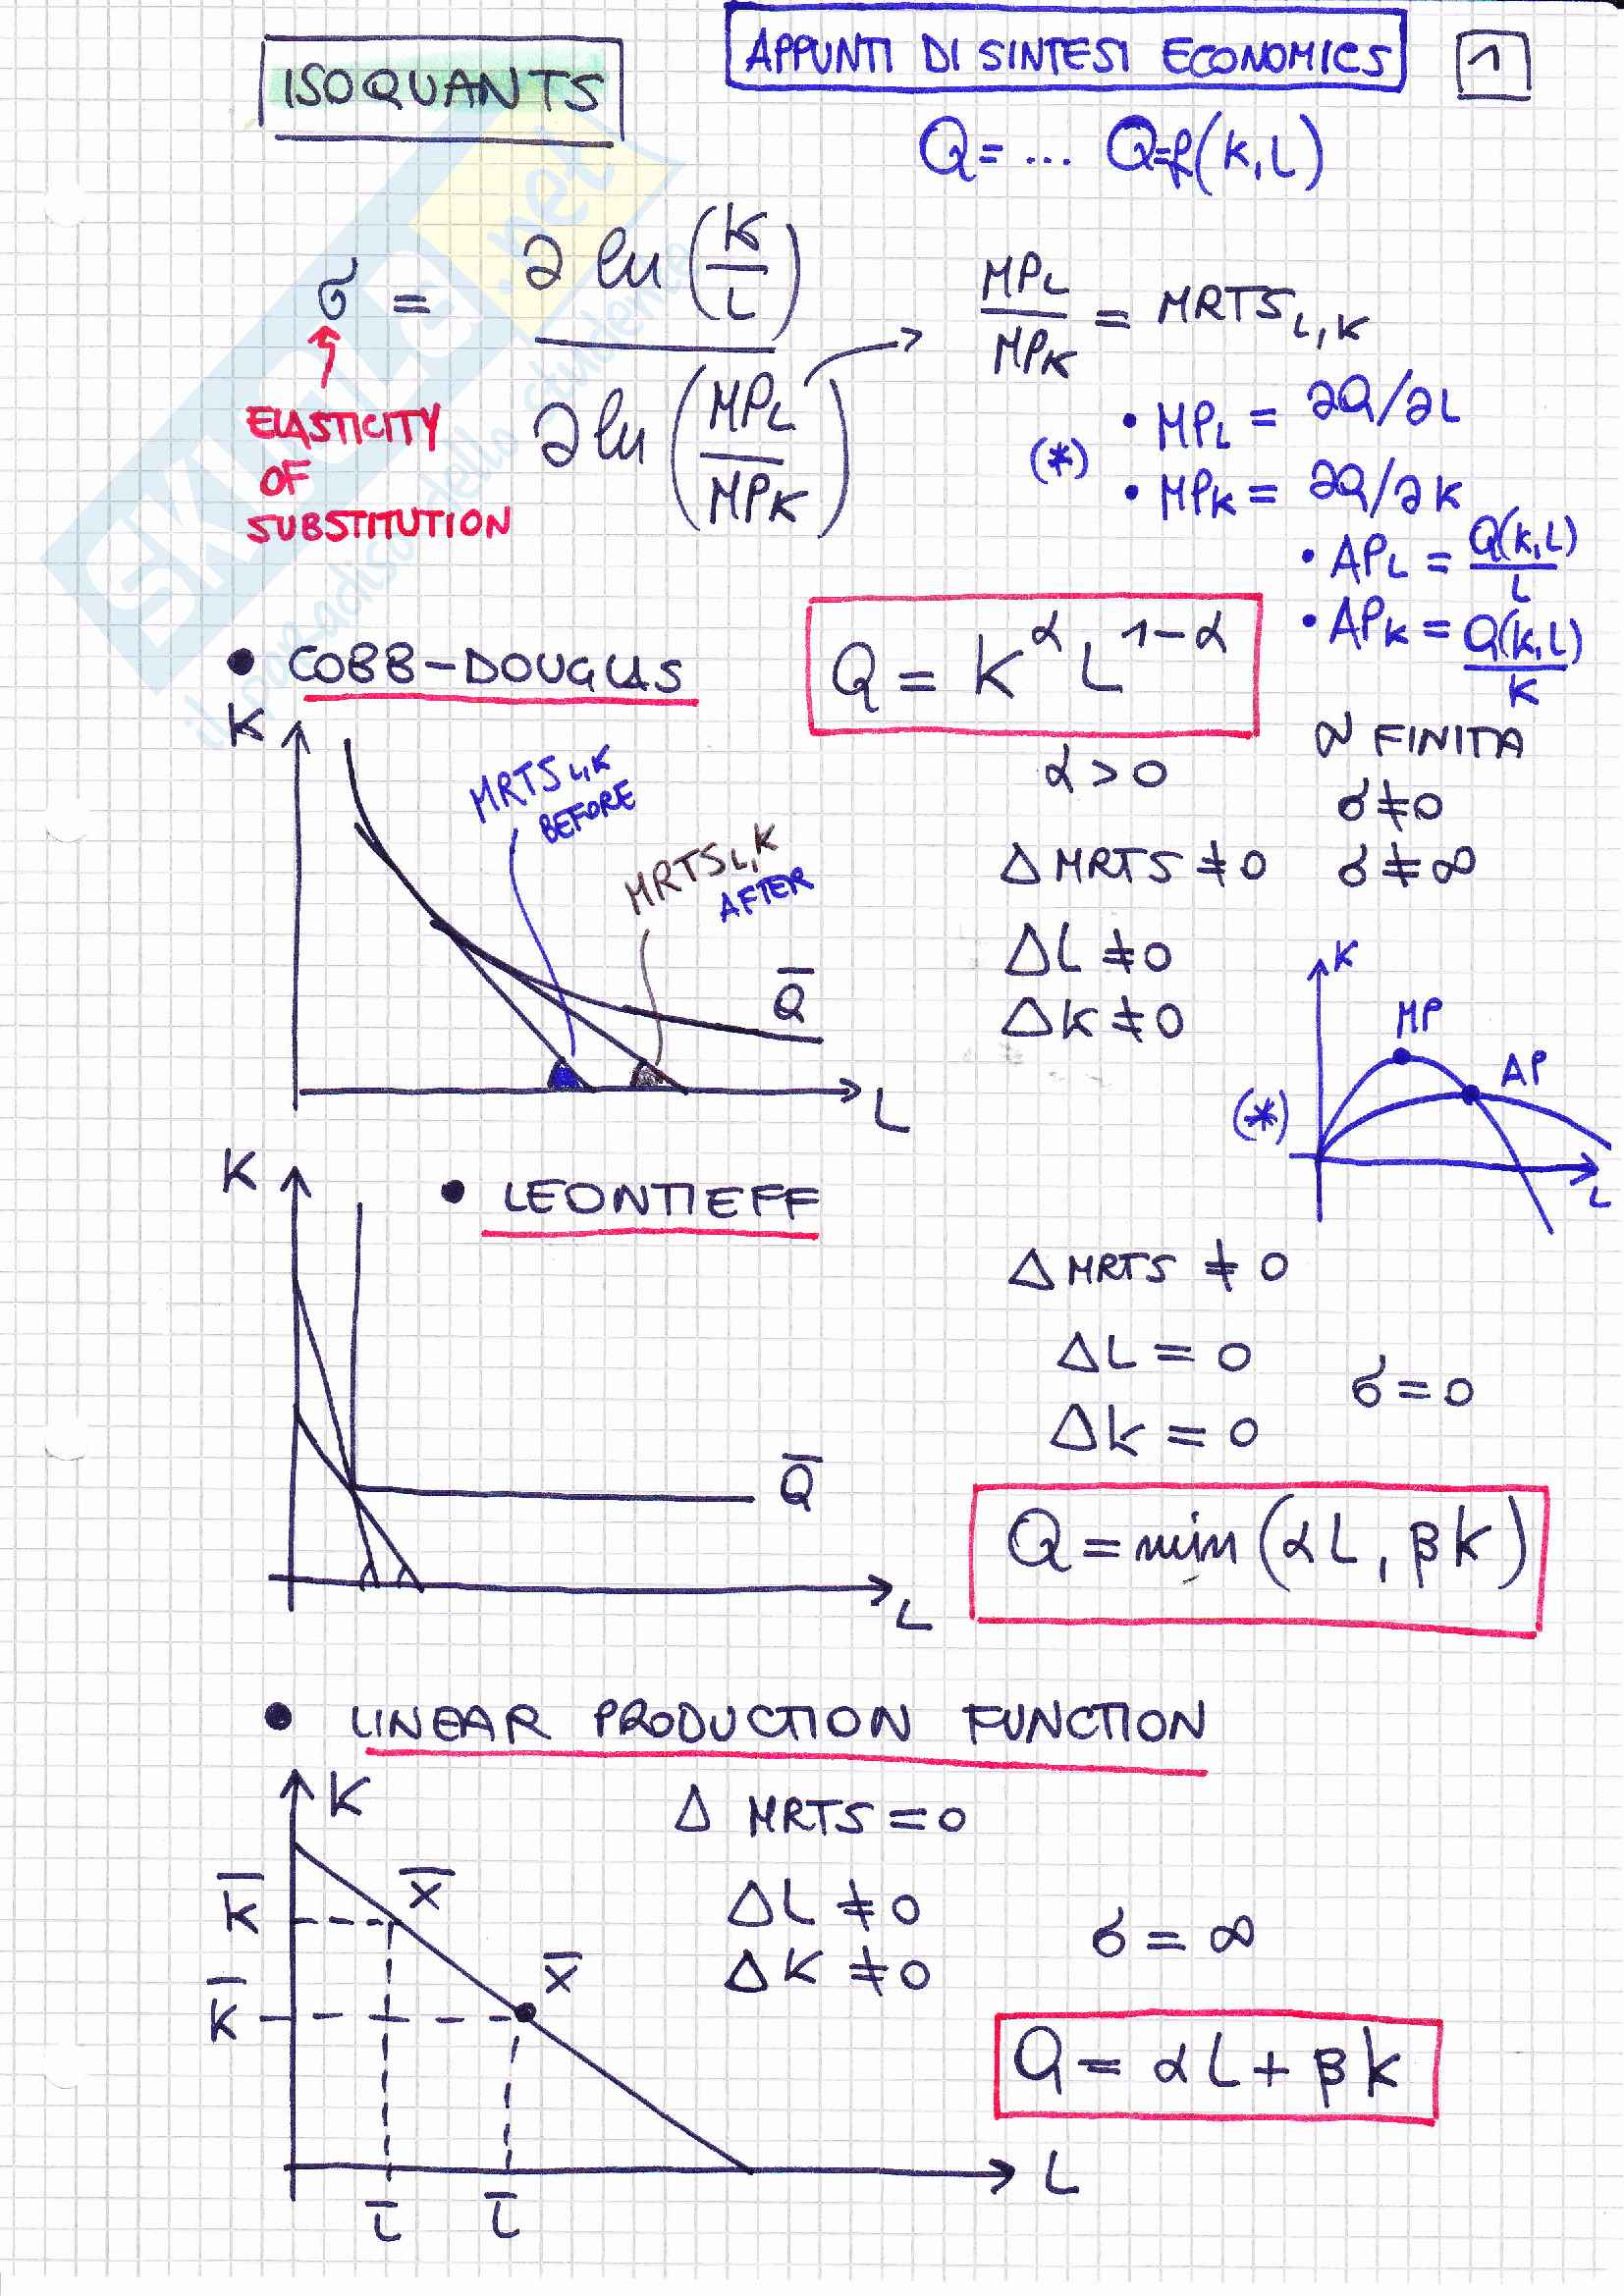 ISOQUANTS
APPUNTI DI SINTESI ECONOMICS
1
Q = ... Q=f(K,L)
σ = ∂ ln (K/L) / ∂ ln (MPL/MPK)
ELASTICITY
OF
SUBSTITUTION
MPL/MPK = MRTS L,K
(*)
• MPL = ∂Q/∂L
• MPK = ∂Q/∂K
• APL = Q(K,L)/L
• APK = Q(K,L)/K
SKUOLA.net
il paradiso dello studente
• COBB-DOUGLAS
Q = K^α L^1-α
α > 0
σ FINITA
σ ≠ 0
Δ MRTS ≠ 0
σ ≠ ∞
ΔL ≠ 0
ΔK ≠ 0
K
MRTS L,K
BEFORE
MRTS L,K
AFTER
Q̅
L
K
MP
AP
(*)
L
K
• LEONTIEFF
Δ MRTS ≠ 0
ΔL = 0
σ = 0
ΔK = 0
Q̅
Q = min (αL, βK)
L
• LINEAR PRODUCTION FUNCTION
K
Δ MRTS = 0
K̅
X̅
ΔL ≠ 0
σ = ∞
K̅
X̅
ΔK ≠ 0
Q = αL + βK
L
L̅
L̅